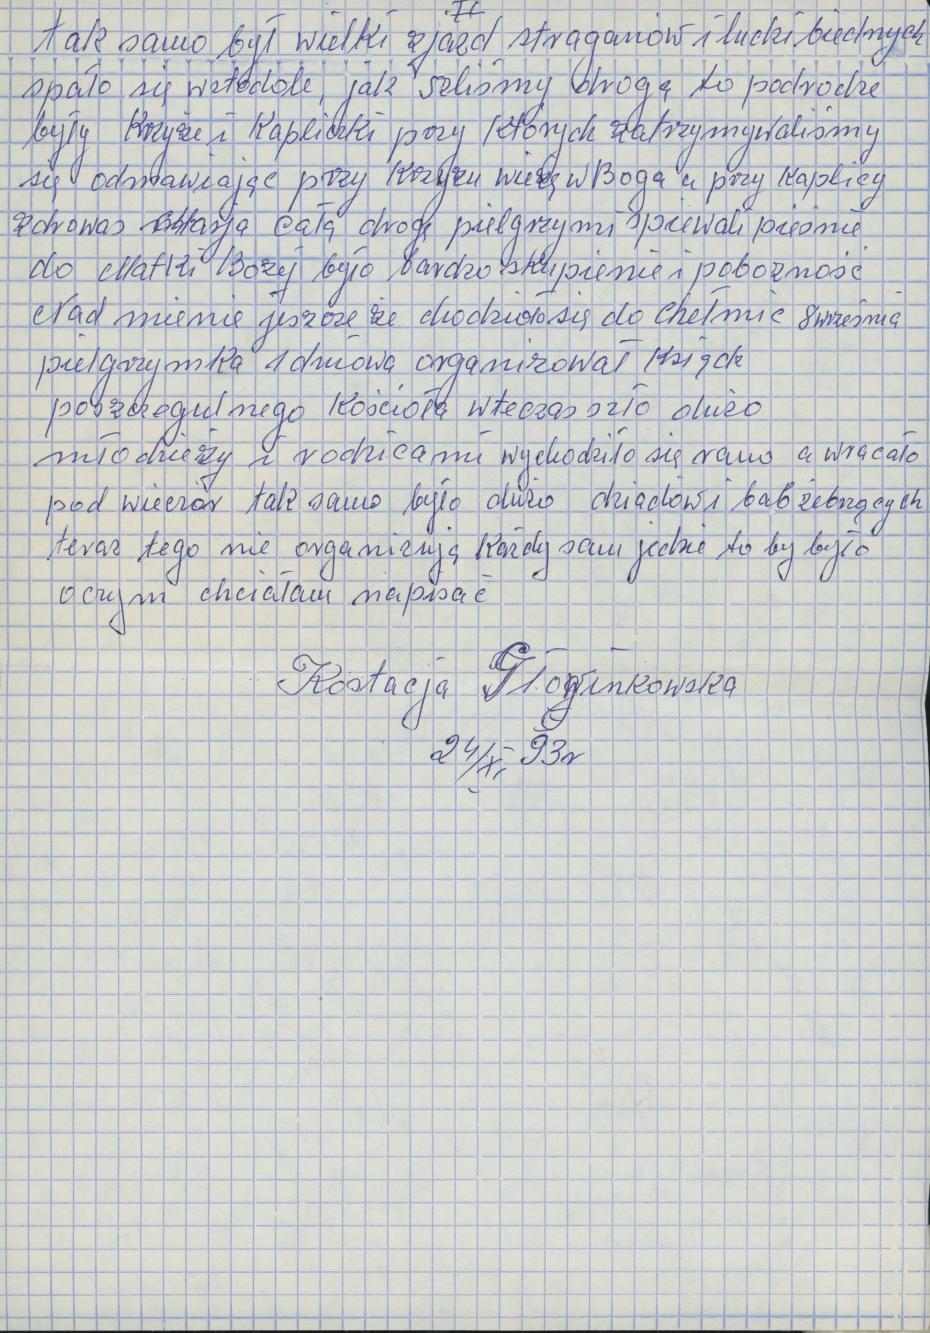 II
tak samo był wielki zjazd straganów i lucki biednych
spało się wstodole, jak szliśmy drogą to podrodze
były Krzyże i Kapliczki przy których zatrzymywaliśmy
się odmawiając przy Krzyżu wierzę w Boga a przy Kaplicy
zdrowas Marja całą drogę pielgrzymi śpiewali pieśnie
do Matki Bożej było bardzo skupienie i pobożność
Nad mienie jeszcze że chodziło się do Chełmic 8 września
pielgrzymka 1 dniowa organizował Ksiądz
poszczegulnego Kościoła wteczas szło dużo
młodzieży i rodzicami wychodziło się rano a wracało
pod wieczór tak samo było dużo dziadów i bab żebrzących
teraz tego nie organizują Każdy sam jedzie to by było
oczym chciałam napisać
24/XI 93r